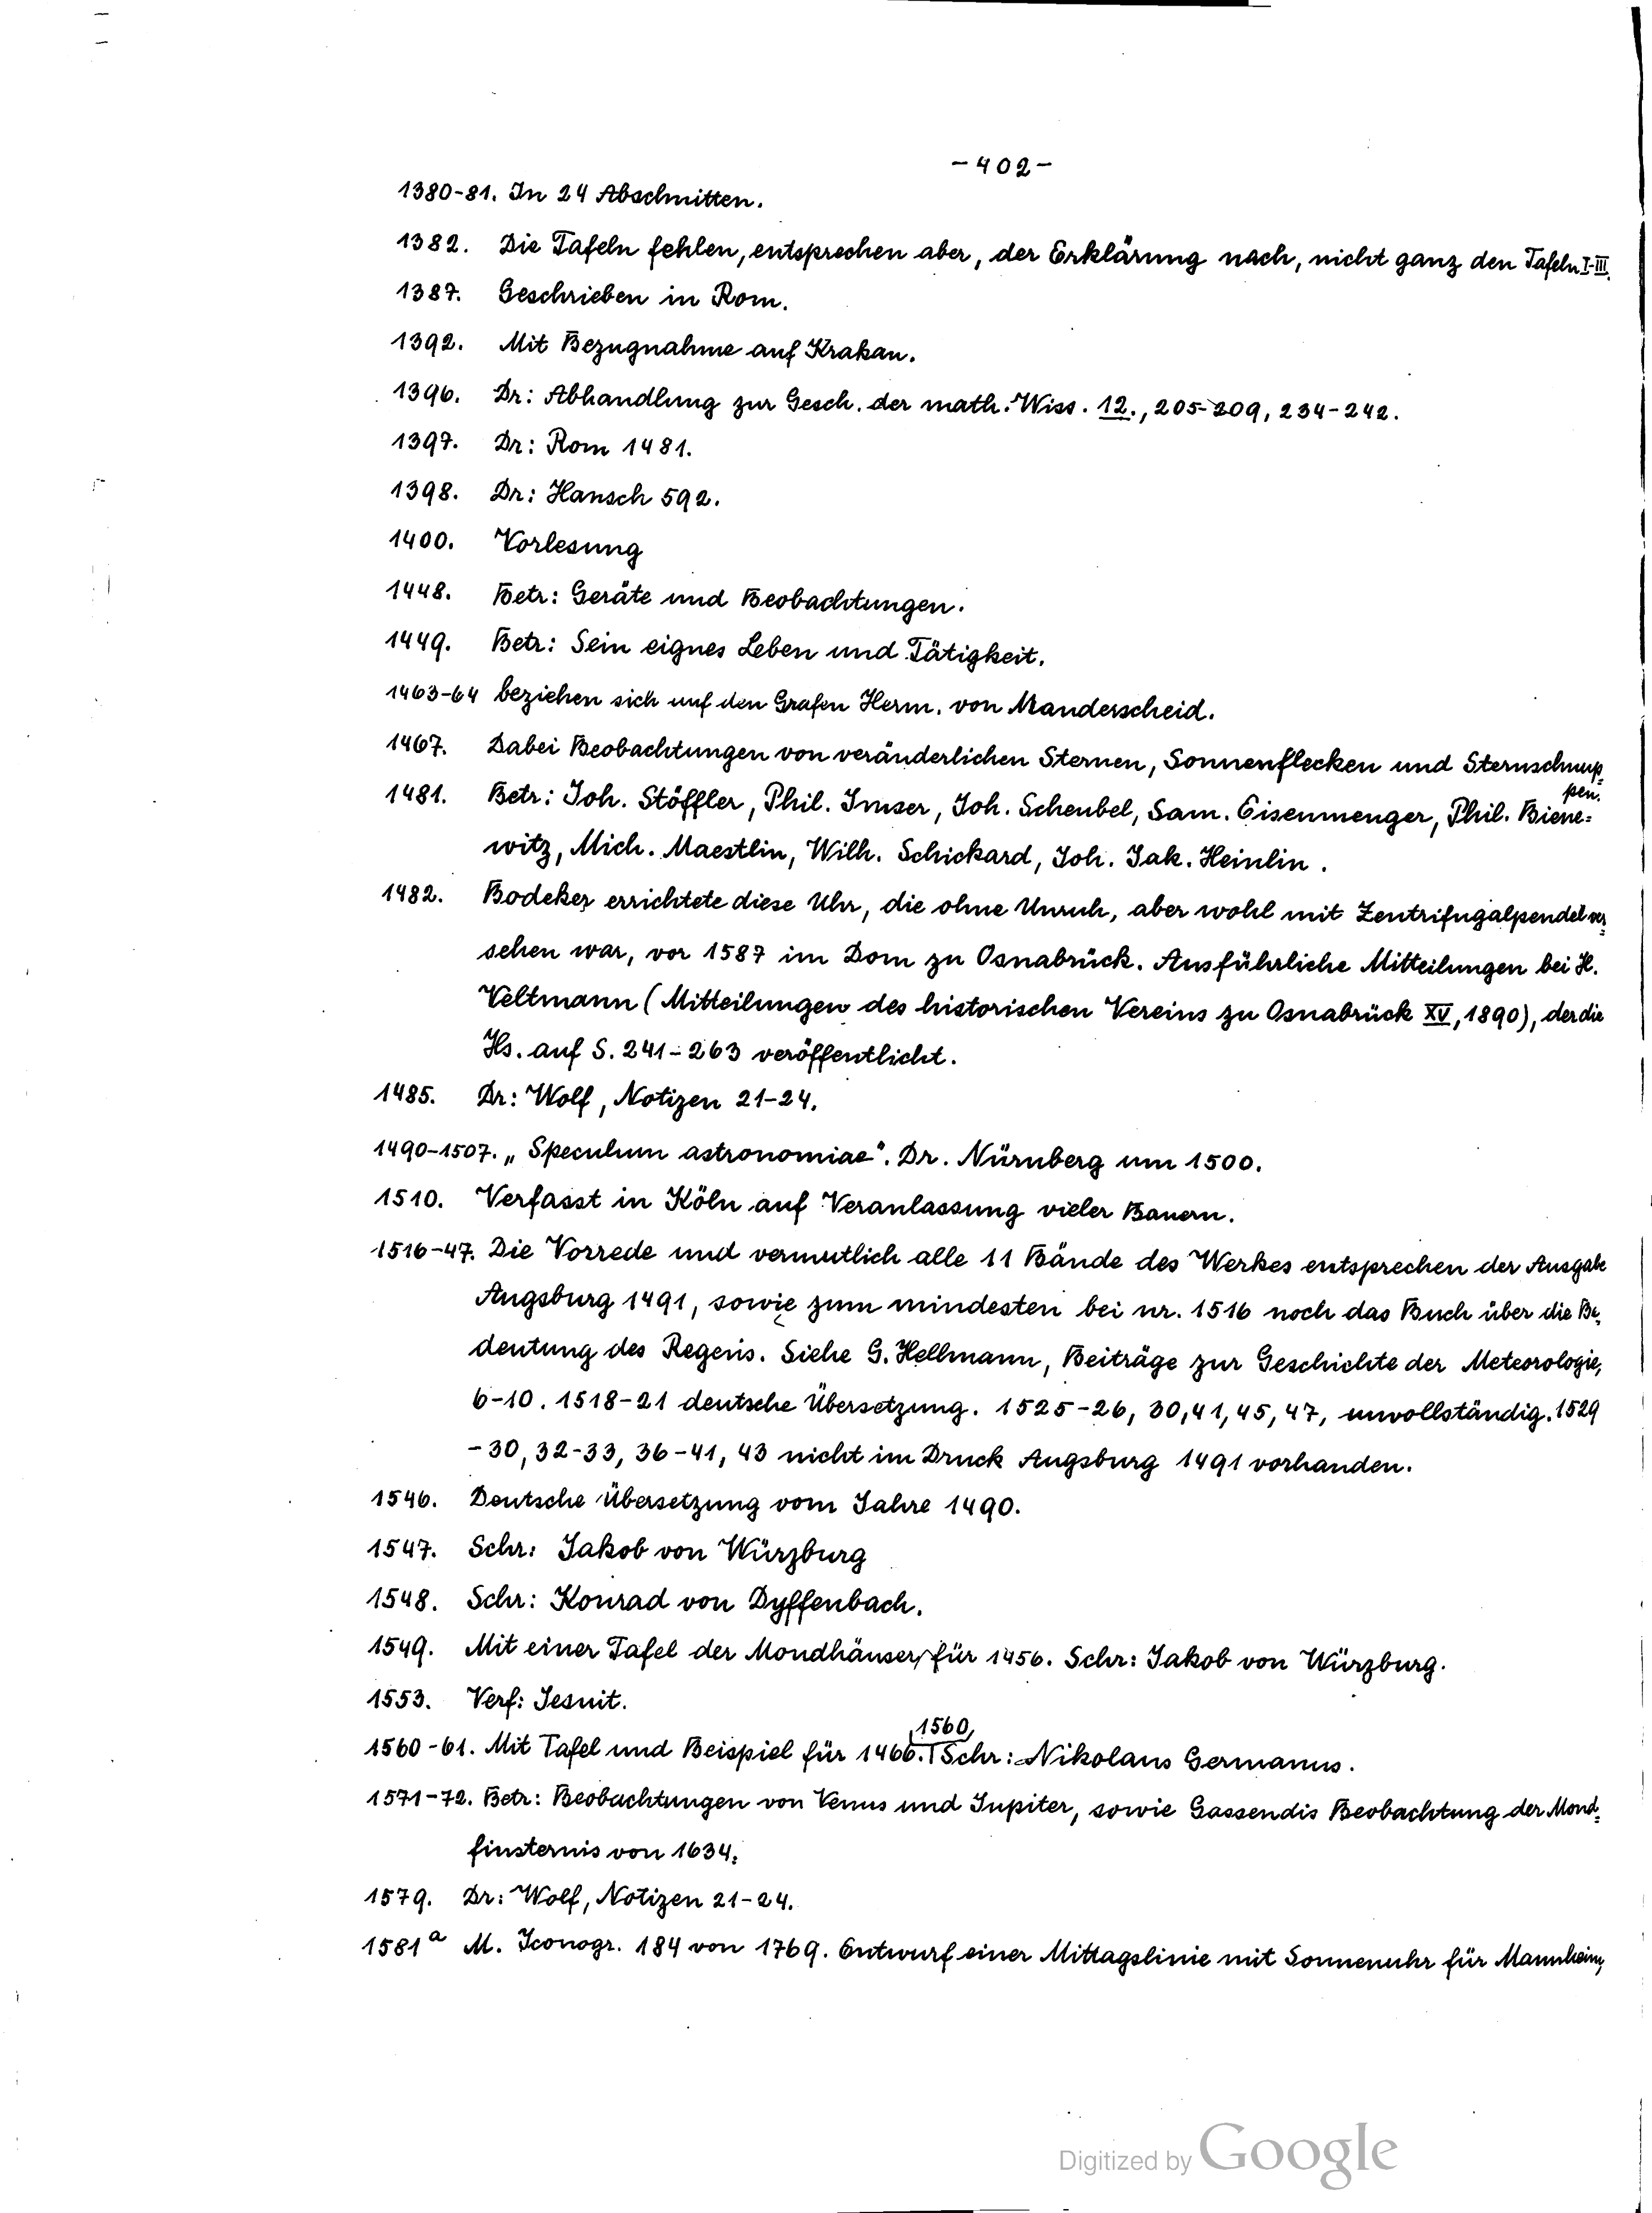 -402-
1380-81. In 24 Abschnitten.
1382. Die Tafeln fehlen, entsprechen aber, der Erklärung nach, nicht ganz den Tafeln I-III.
1387. Geschrieben in Rom.
1392. Mit Bezugnahme auf Krakau.
1396. Dr: Abhandlung zur Gesch. der math. Wiss. 12., 205-209, 234-242.
1397. Dr: Rom 1481.
1398. Dr: Hansch 592.
1400. Vorlesung
1448. Betr: Geräte und Beobachtungen.
1449. Betr: Sein eignes Leben und Tätigkeit.
1463-64 beziehen sich auf den Grafen Herm. von Manderscheid.
1467. Dabei Beobachtungen von veränderlichen Sternen, Sonnenflecken und Sternschnup=
pen.
1481. Betr: Joh. Stöffler, Phil. Imser, Joh. Scheubel, Sam. Eisenmenger, Phil. Biene=
witz, Mich. Maestlin, Wilh. Schickard, Joh. Jak. Heinlin.
1482. Bodeker errichtete diese Uhr, die ohne Unruh, aber wohl mit Zentrifugalpendel ver=
sehen war, vor 1587 im Dom zu Osnabrück. Ausführliche Mitteilungen bei H.
Veltmann (Mitteilungen des historischen Vereins zu Osnabrück XV, 1890), der die
Hs. auf S. 241-263 veröffentlicht.
1485. Dr: Wolf, Notizen 21-24.
1490-1507. „Speculum astronomiae". Dr. Nürnberg um 1500.
1510. Verfasst in Köln auf Veranlassung vieler Bauern.
1516-47. Die Vorrede und vermutlich alle 11 Bände des Werkes entsprechen der Ausgabe
Augsburg 1491, sowie zum mindesten bei nr. 1516 noch das Buch über die Be=
deutung des Regens. Siehe G. Hellmann, Beiträge zur Geschichte der Meteorologie,
6-10. 1518-21 deutsche Übersetzung. 1525-26, 30, 41, 45, 47, unvollständig. 1529
-30, 32-33, 36-41, 43 nicht im Druck Augsburg 1491 vorhanden.
1546. Deutsche Übersetzung vom Jahre 1490.
1547. Schr: Jakob von Würzburg
1548. Schr: Konrad von Dyffenbach.
1549. Mit einer Tafel der Mondhäuser für 1456. Schr: Jakob von Würzburg.
1553. Verf: Jesuit.
1560
1560-61. Mit Tafel und Beispiel für 1466. Schr: Nikolaus Germanus.
1571-72. Betr: Beobachtungen von Venus und Jupiter, sowie Gassendis Beobachtung der Mond=
finsternis von 1634.
1579. Dr: Wolf, Notizen 21-24.
1581a M. Iconogr. 184 von 1769. Entwurf einer Mittagslinie mit Sonnenuhr für Mannheim,
Digitized by Google